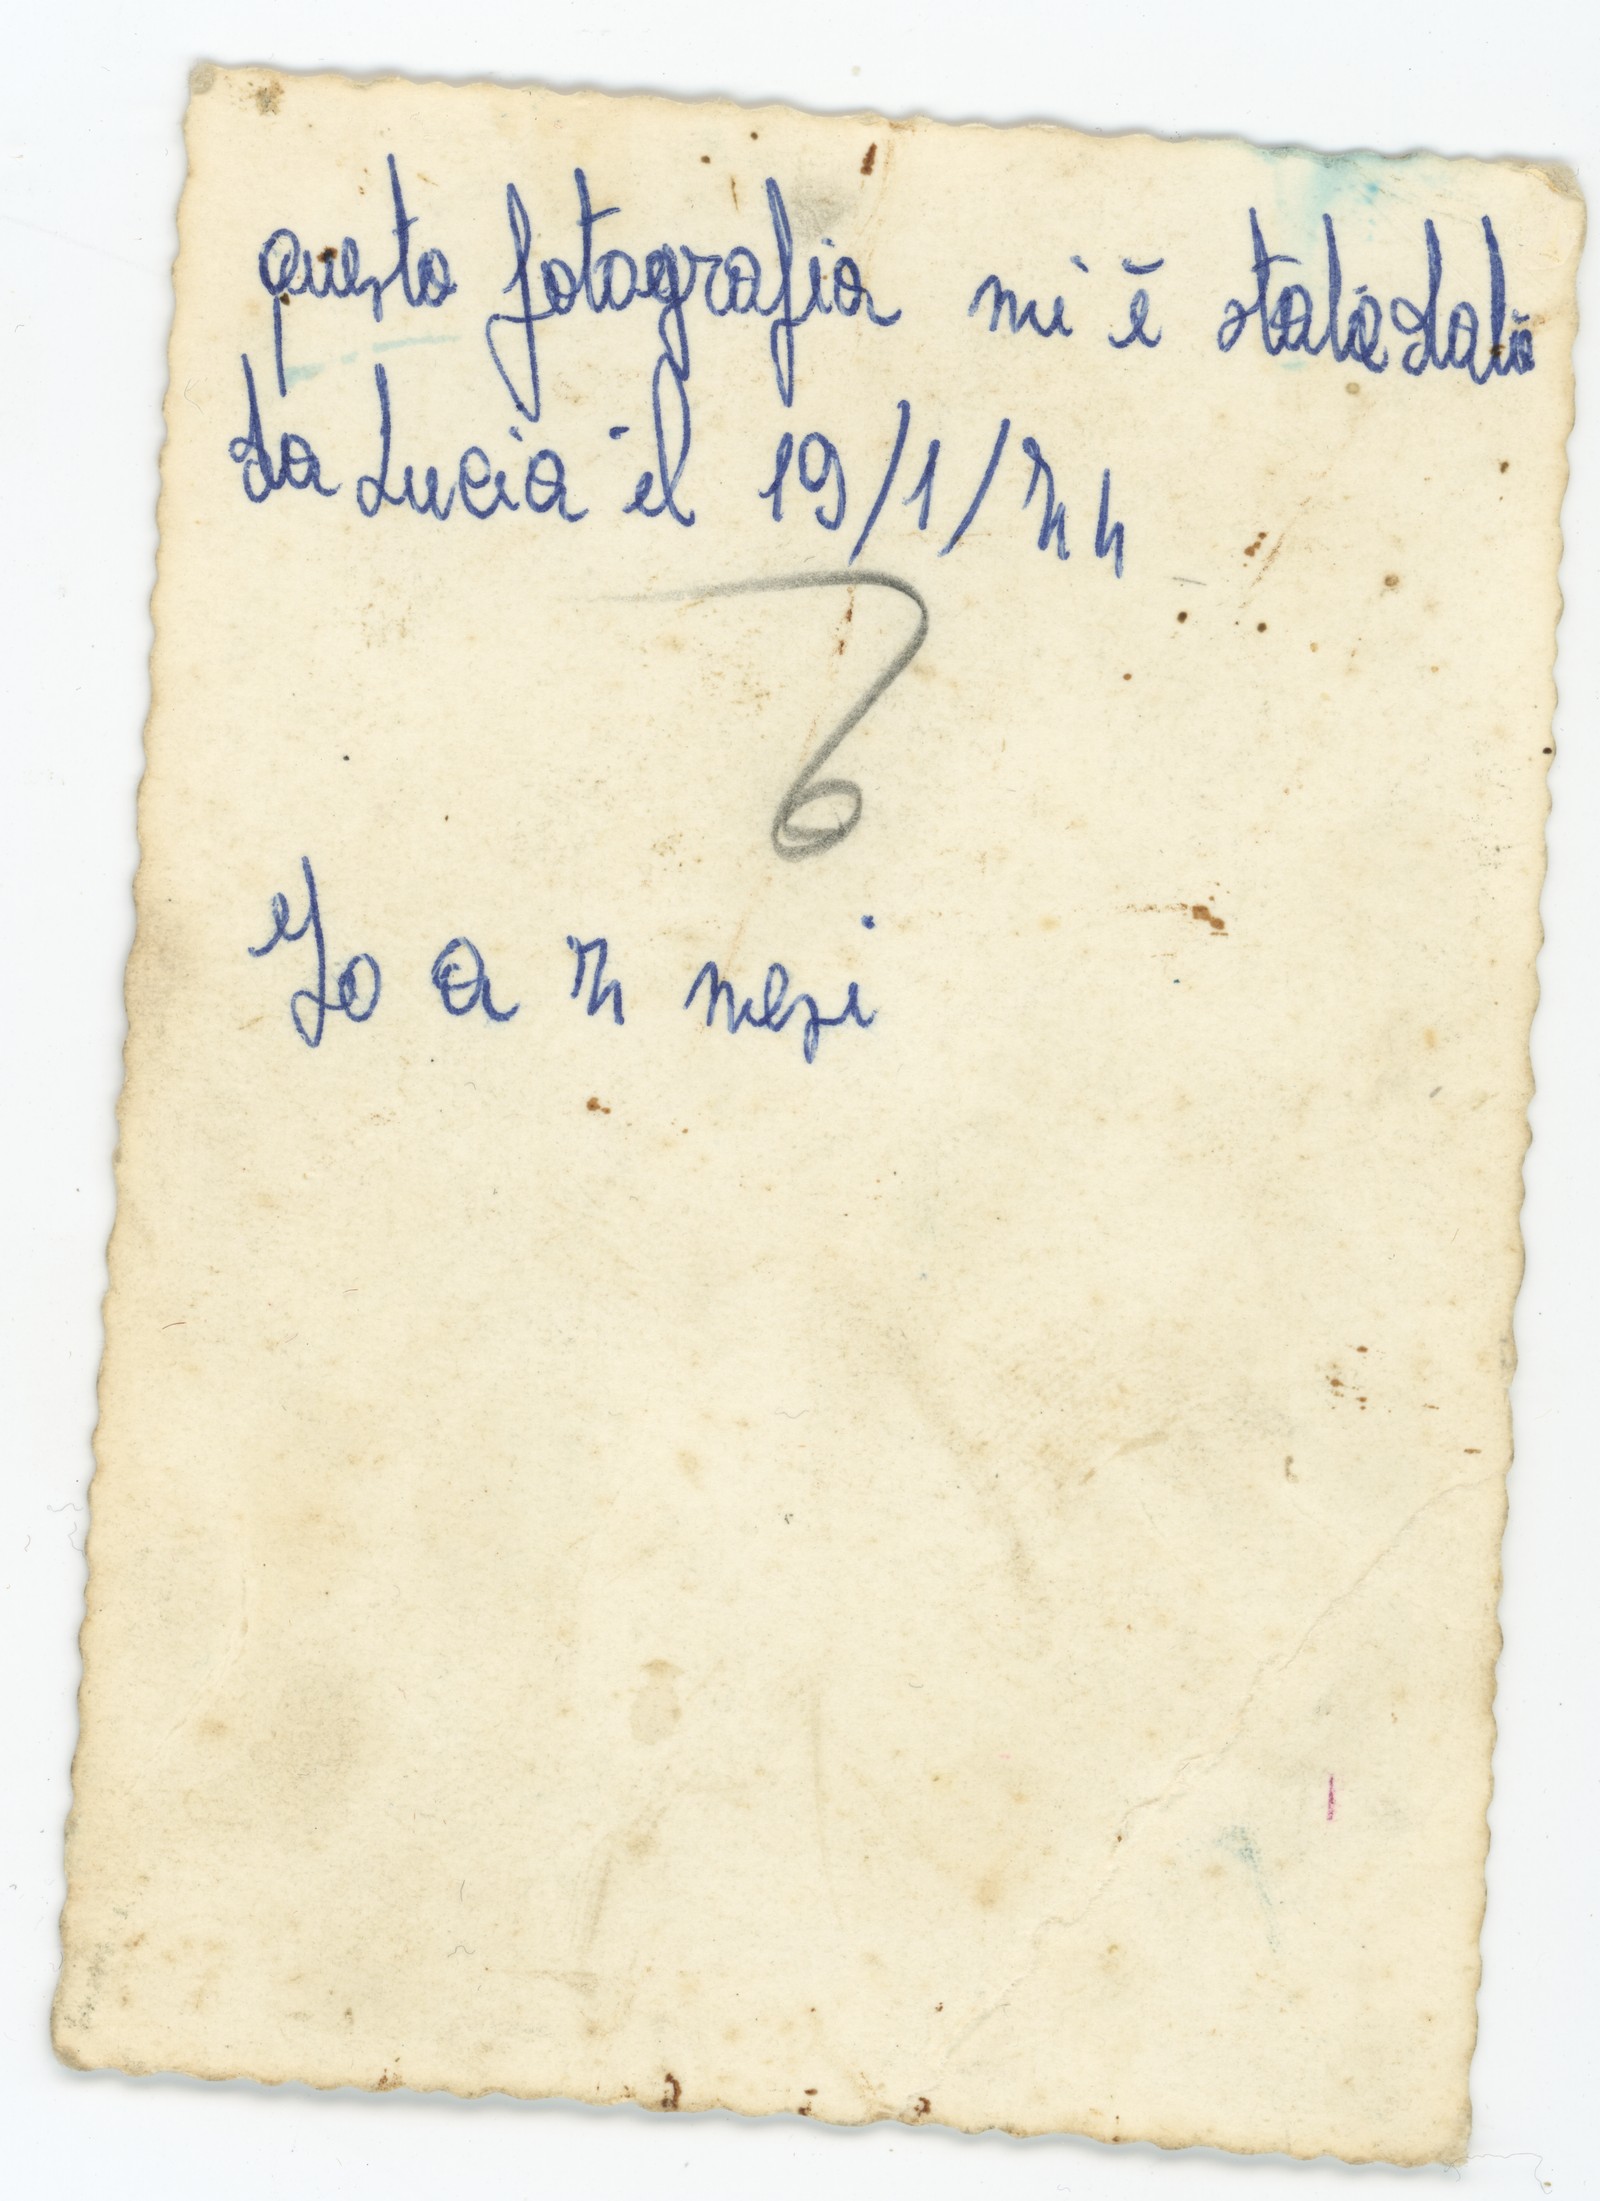 questo fotografia mi è stata data
da Lucia il 19/1/74
Io a 7 mesi